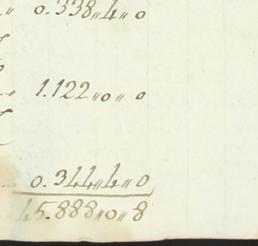 0.338,,4,,0
1.122,,0,,0
0.344,,4,,0
45.888,,0,,8